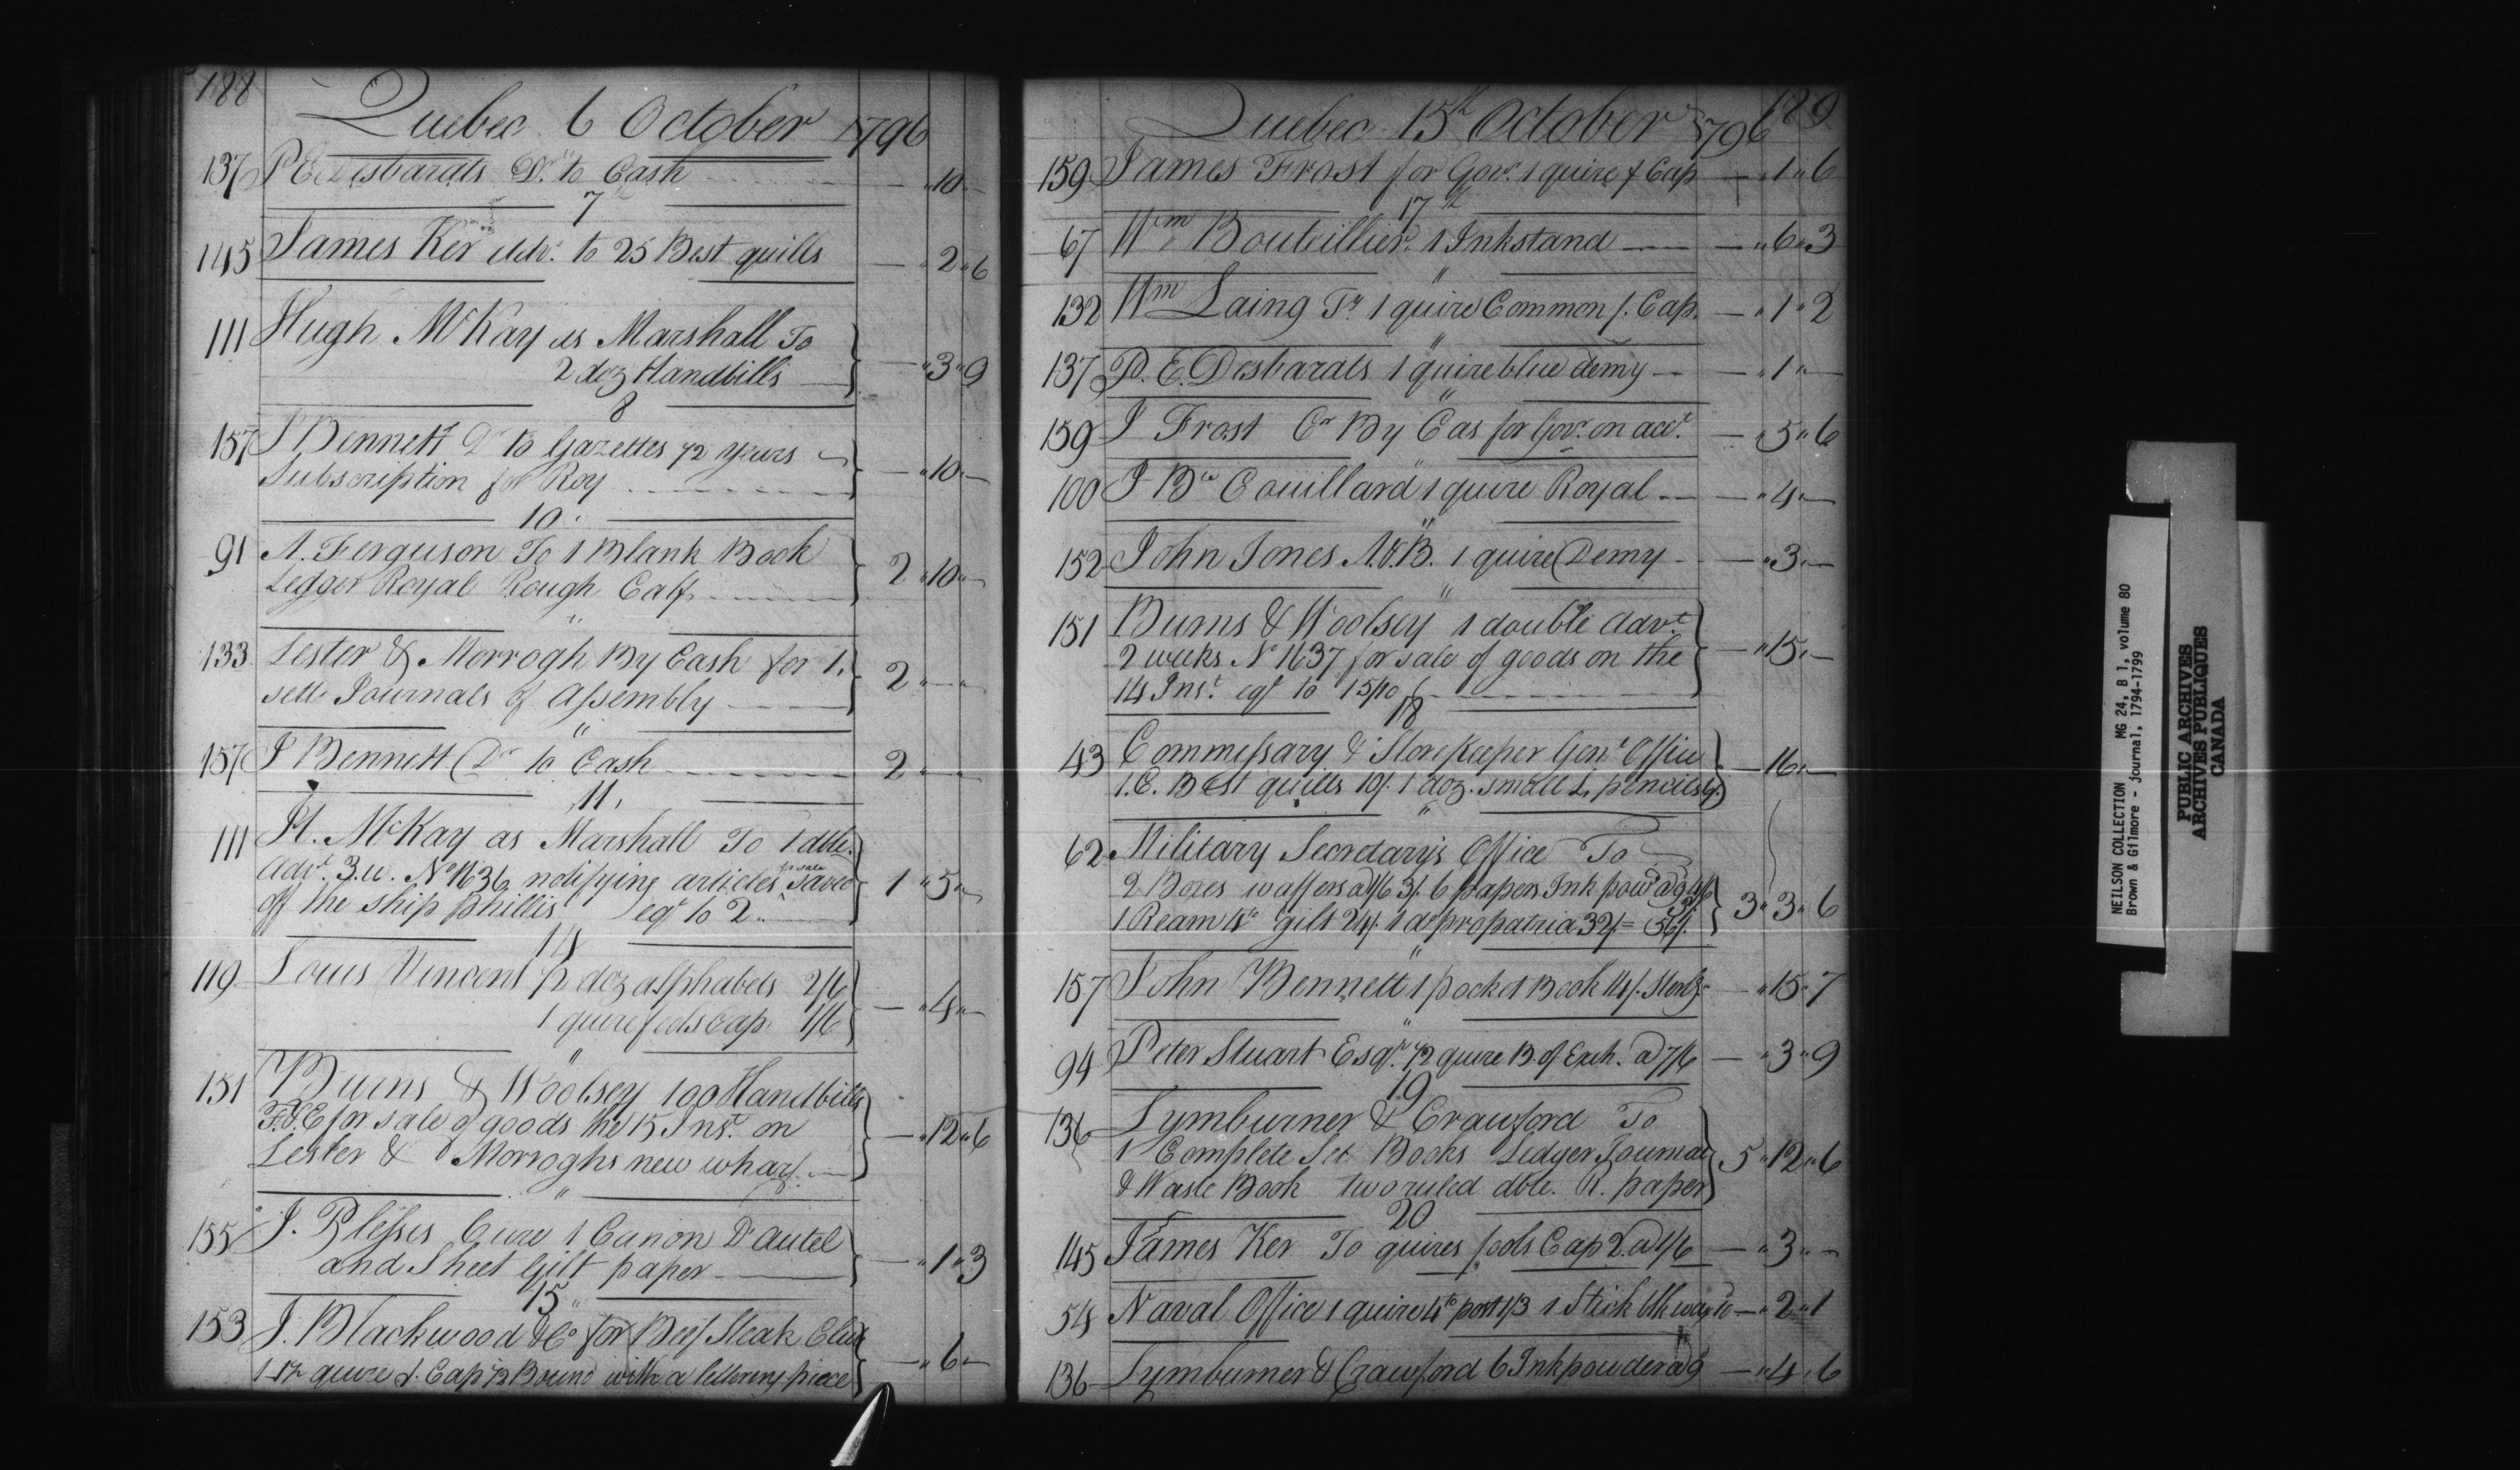 188
Quebec 6 October 1796
137 P E Desbarats Dr. to Cash - " 10 " -
7
145 James Ker Advr. to 25 Best quills - " 2 " 6
111 Hugh McKay as Marshall To
2 doz Handbills - " 3 " 9
8
157 J Bennett Dr to Gazettes 1/2 years
Subscription for Roy - " 10 " -
10
91 A. Ferguson To 1 Blank Book
Ledger Royal Rough Calf 2 " 10 " -
"
133 Lester & Morrogh By Cash for 1.
sett Journals of Assembly 2 " - " -
"
157 J Bennett Dr to Cash 2 " - " -
11
111 H. McKay as Marshall To 1 dble.
advt. 3.w. No 1636 notifying articles for sale saved
off the Ship Phillis eql to 2 1 " 5 " -
14
119 Louis Vincent 1/2 doz alphabets 2/6
1 quire fools Cap 1/6 - " 4 " -
"
151 Burns & Woolsey 100 Handbills
F. & E for sale of goods the 15 Inst. on
Lester & Morroghs new wharf - " 12 " 6
"
155 J. Plessis Cure 1 Canon D'autel
and Sheet Gilt paper - " 1 " 3
15
153 J. Blackwood & Co for Beef Steak Club
1 1/2 quire f. Cap 1/2 Bound with a lettering piece - " 6 " -
189
Quebec 15th October 1796
159 James Frost for Govr. 1 quire f Cap - " 1 " 6
17th
67 Wm Bouteillier. 1 Inkstand - " 6 " 3
"
132 Wm Laing Tr 1 quire Common f. Cap. - " 1 " 2
"
137 P. E. Desbarats 1 quire blue demy - " 1 " -
"
159 J Frost Cr By Cas for Govr. on acct. - " 5 " 6
"
100 J Bte Couillard 1 quire Royal - " 4 " -
"
152 John Jones A.&B. 1 quire Demy - " 3 " -
"
151 Burns & Woolsey 1 double advt.
2 weeks No 1637 for sale of goods on the
14 Inst. eql to 15/10 - " 15 " -
18
43 Commissary & Storekeeper Genl Office
1. C. Best quills 10/. 1 doz. small L pencils 6/. - 16 " -
"
62 Military Secretary's Office To
2 Boxes waffers a 1/6 3/. 6 papers Ink powd a 9 4/6
1 Ream 4to gilt 24/. 1 do propatria 32/ = 56/. 3 " 3 " 6
"
157 John Bennett 1 pocket Book 14/. Sterlg - " 15 " 7
"
94 Peter Stuart Esqr. 1/2 quire B. of Exch. a 7/6 - " 3 " 9
19
136 Lymburner & Crawford To
1 Complete Set Books Ledger Journal
& Waste Book two ruled dble. R. paper 5 " 12 " 6
20
145 James Ker To quires fools Cap 2. a 1/6 - " 3 " -
54 Naval Office 1 quire 4to post 1/3 1 Stick blk wax 10 - " 2 " 1
"
136 Lymburner & Crawford 6 Inkpowder a 9 - " 4 " 6
NEILSON COLLECTION MG 24, B 1, volume 80
Brown & Gilmore - journal, 1794-1799
PUBLIC ARCHIVES
ARCHIVES PUBLIQUES
CANADA